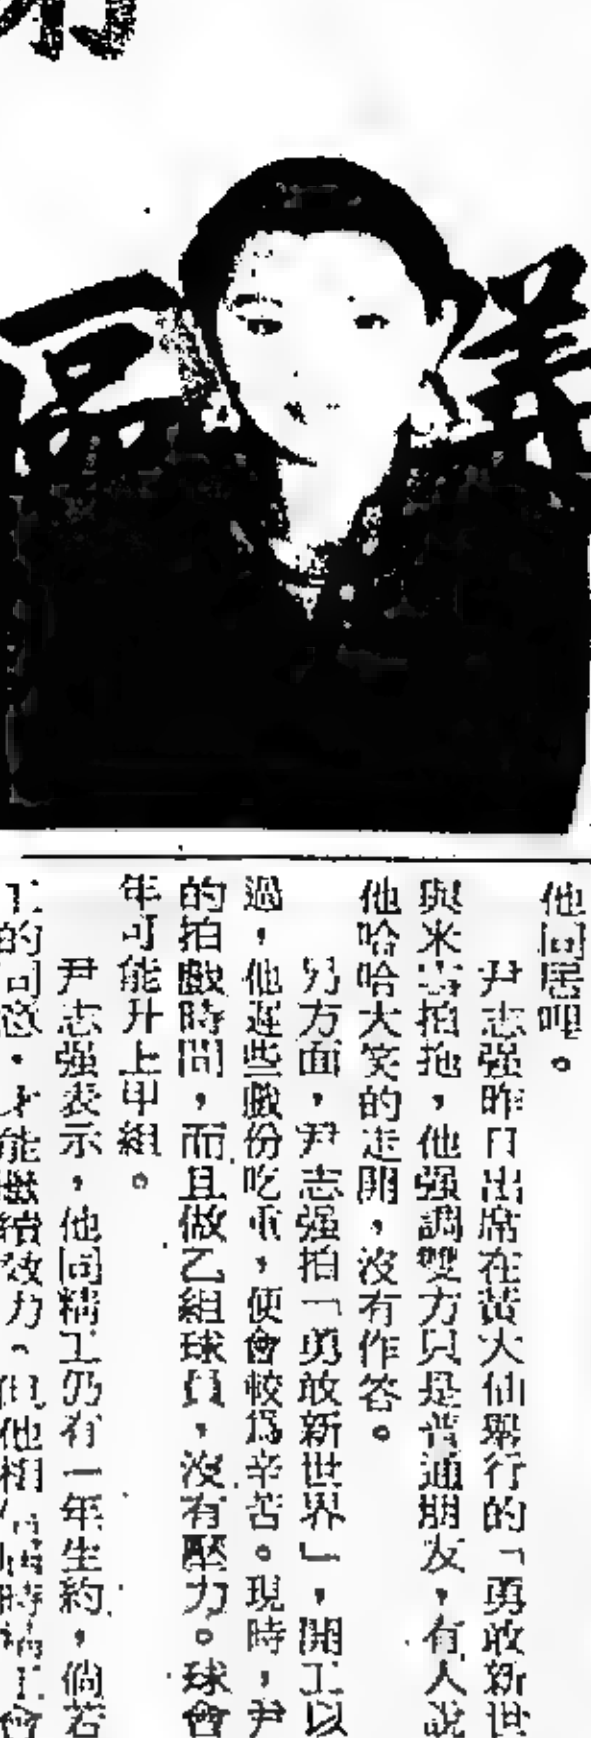 他同居哩。
尹志强昨日出席在黃大仙舉行的「勇敢新世
與米雪拍拖，他强調雙方只是普通朋友，有人說
他哈哈大笑的走開，沒有作答。
另方面，尹志强拍「勇敢新世界」，開工以
過，他遲些戲份吃重，便會較爲辛苦。現時，尹
的拍戲時間，而且做乙組球員，沒有壓力。球會
年可能升上甲組。
尹志强表示，他同精工仍有一年生約，倘若
的同意，才能繼續效力。但他相信屆時精工會